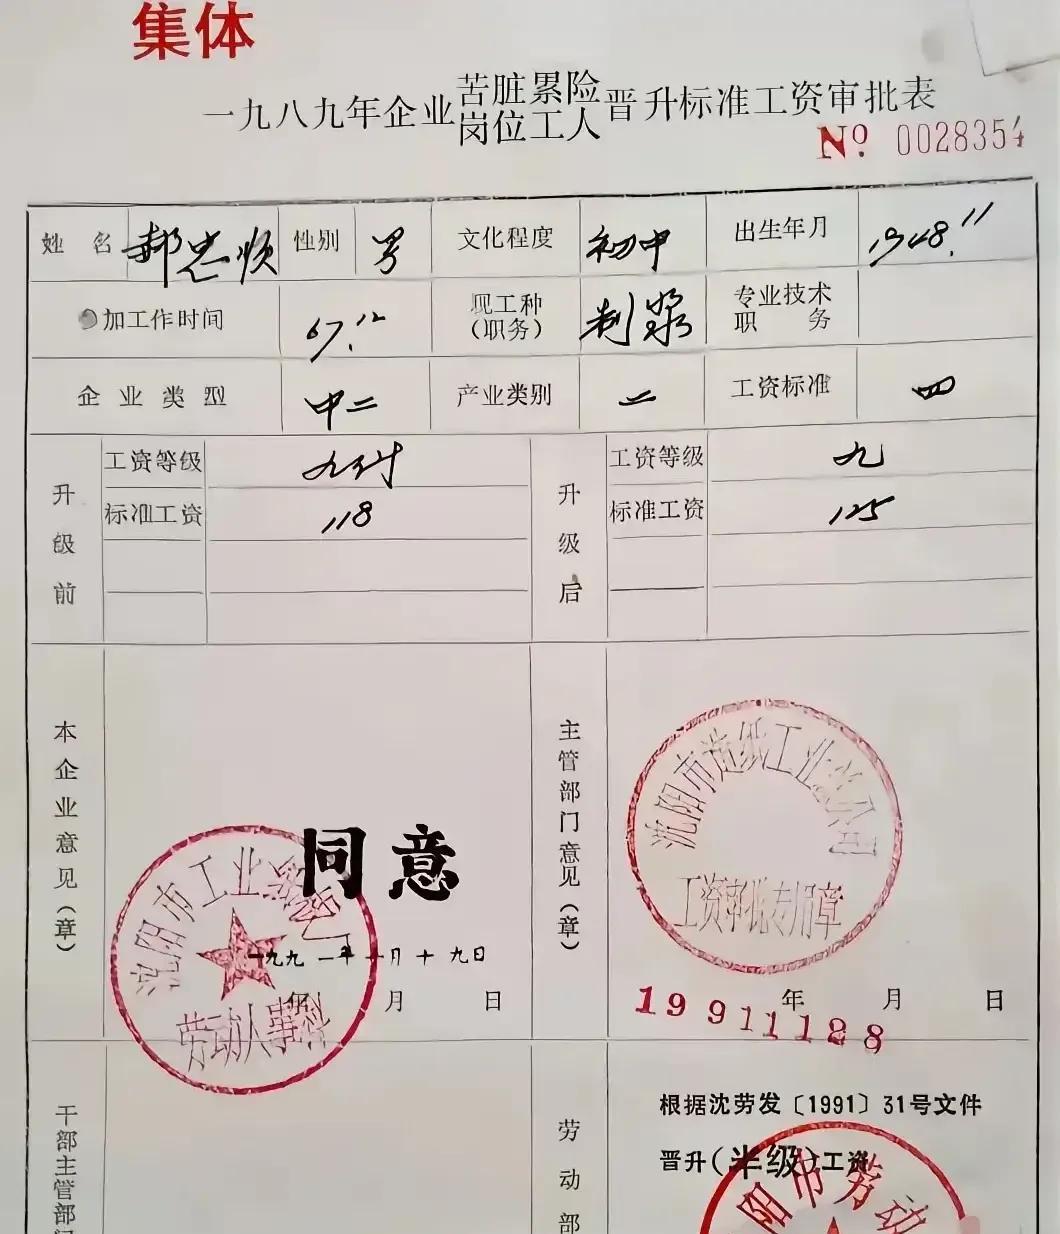 集体
一九八九年企业苦脏累险岗位工人晋升标准工资审批表
№ 0028354
姓名 郝忠顺 性别 男 文化程度 初中 出生年月 1948.11
加工作时间 67.12 现工种(职务) 制浆 专业技术职务
企业类型 中二 产业类别 二 工资标准 四
升级前 工资等级 九付 升级后 工资等级 九
标准工资 118 标准工资 125
本企业意见(章) 同意 主管部门意见(章)
沈阳市造纸工业总公司
工资审批专用章
沈阳市工业
劳动人事科
一九九一年一月十九日
年 月 日
19911128 年 月 日
干部主管部门 劳动部
根据沈劳发〔1991〕31号文件
晋升(半级)工资
阳市劳动